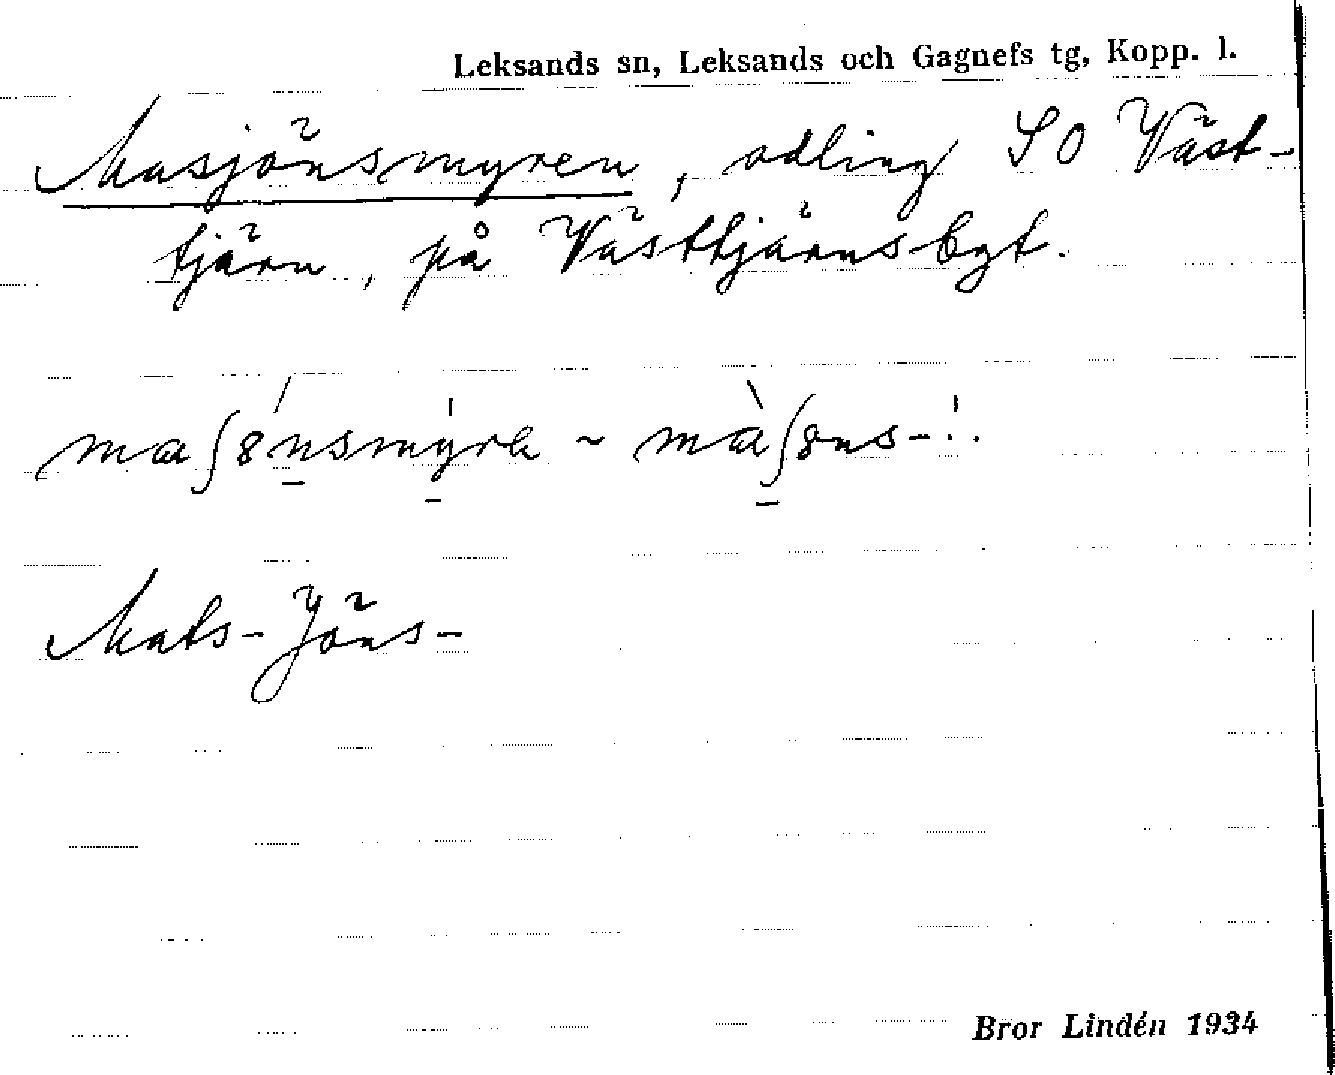 Leksands sn, Leksands och Gagnefs tg, Kopp. l.
Masjönsmyren, odling SO Väst-
tjärn, på Västtjärnsbyt.
maʃ8nsmyra ~ màʃ8ns-..
Mats-Jöns-
Bror Lindén 1934